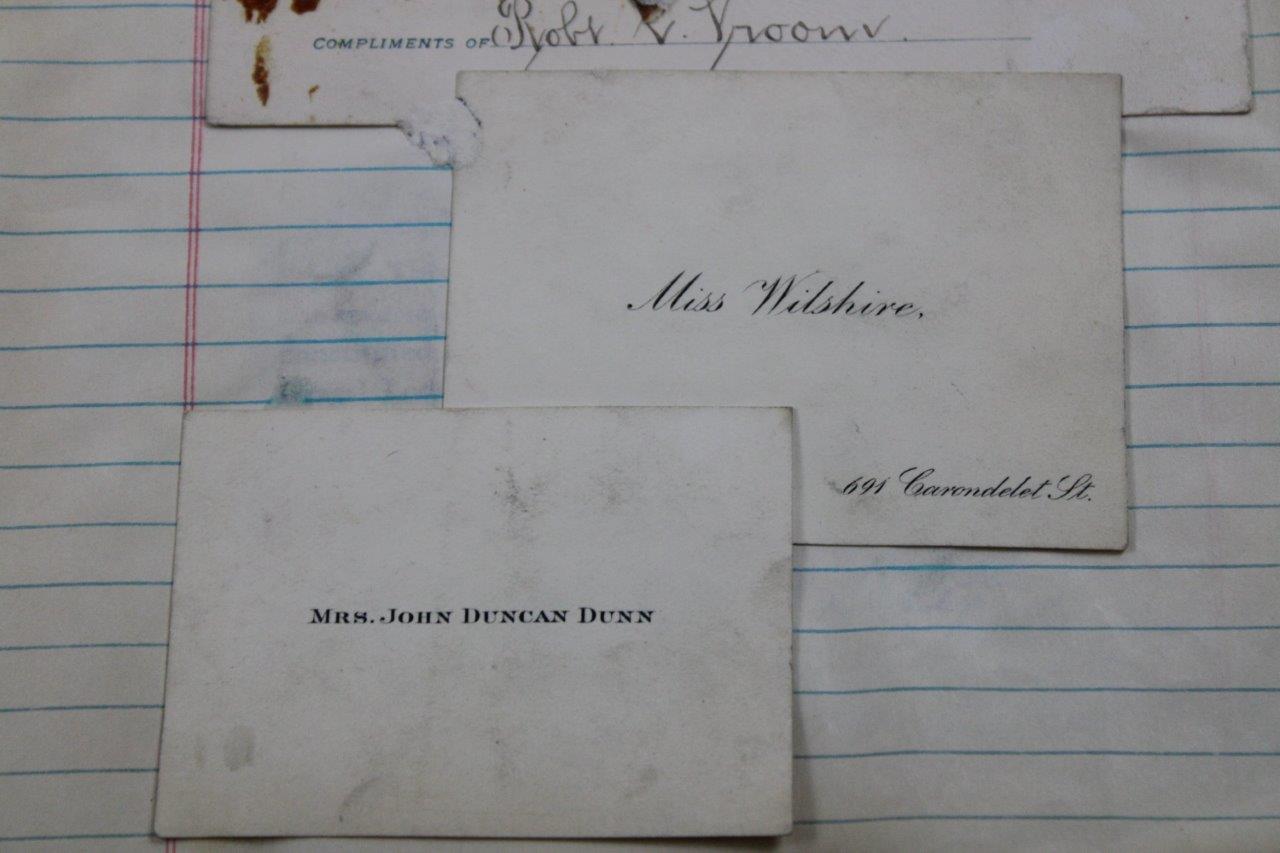 COMPLIMENTS OF Robt. Vroom.
Miss Wilshire,
691 Carondelet St.
MRS. JOHN DUNCAN DUNN